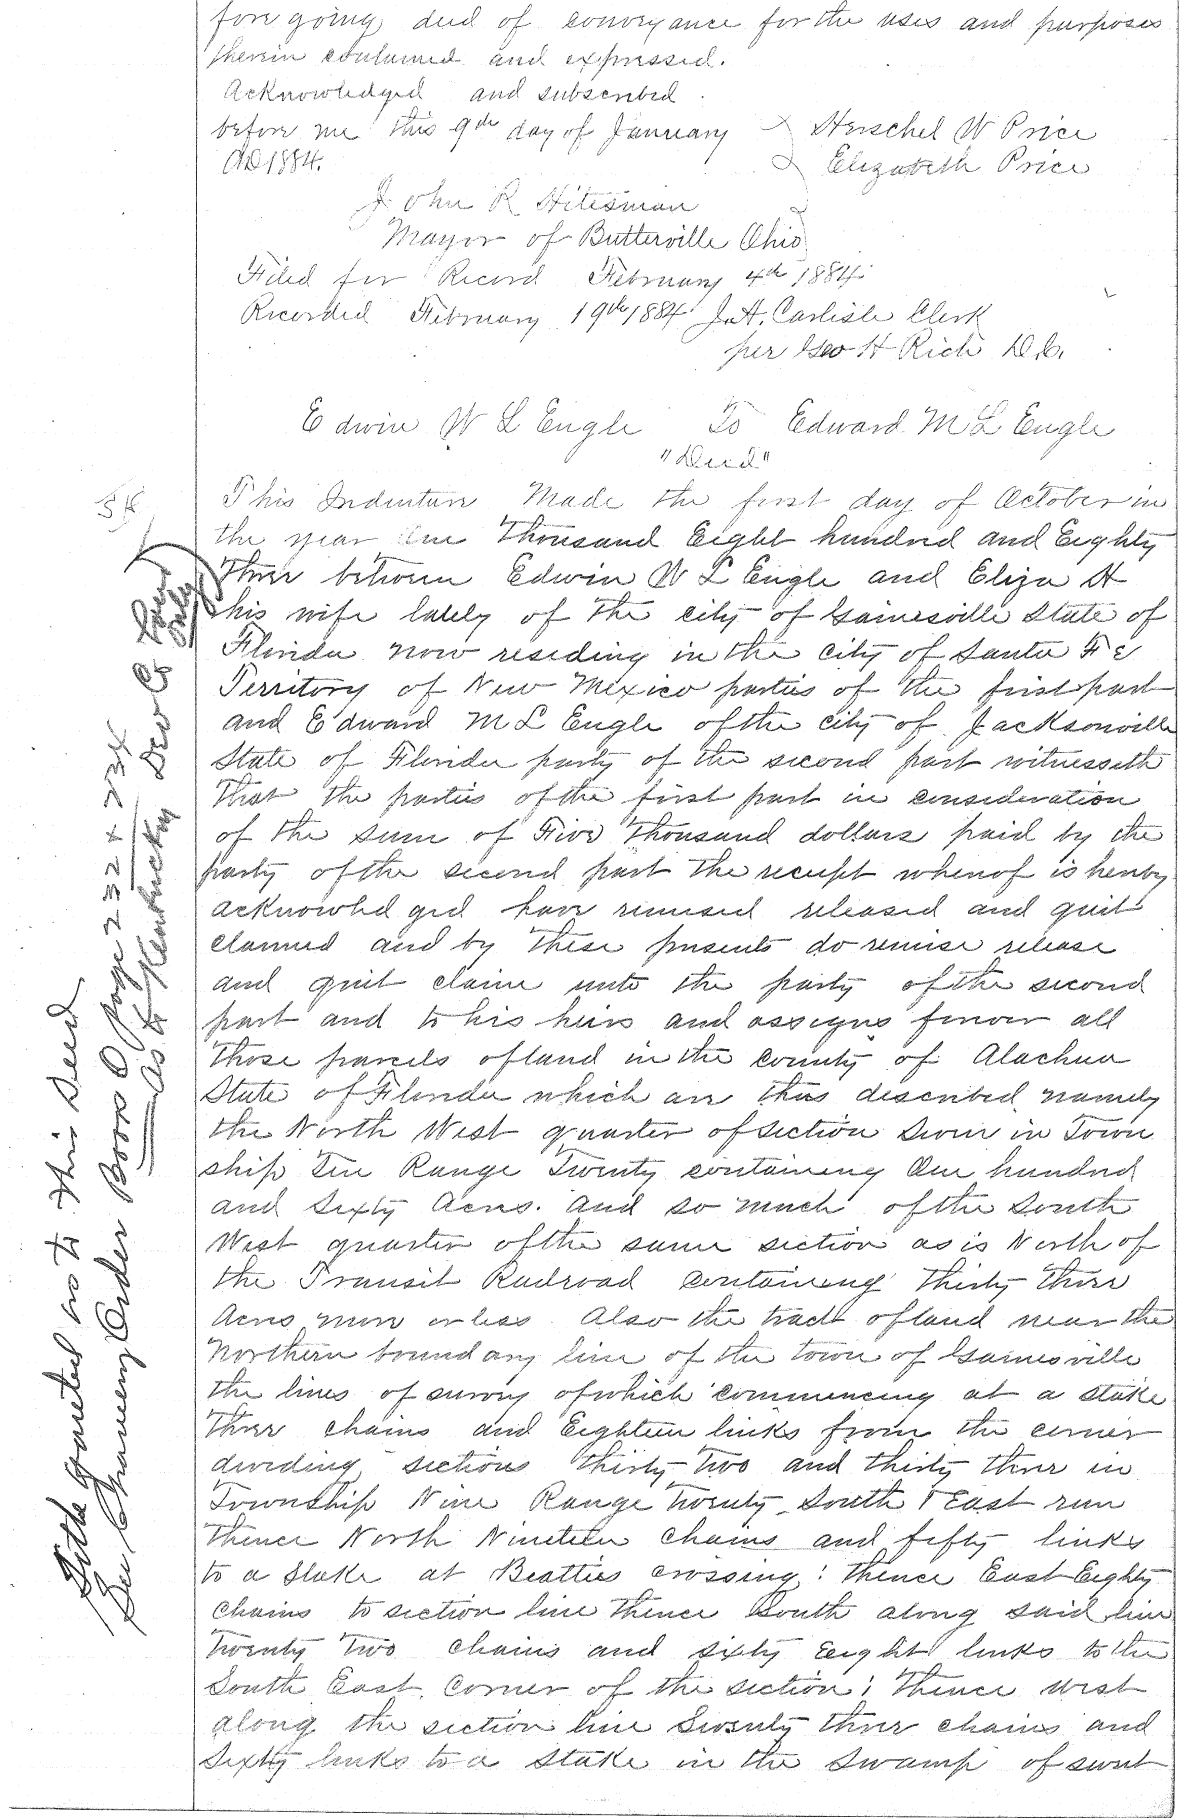 foregoing deed of conveyance for the uses and purposes
therein contained and expressed.
Acknowledged and subscribed
before me this 9th day of January
AD 1884.
Herschel W Price
Elizabeth Price
John R Hitesman
Mayor of Butterville Ohio
Filed for Record February 4th 1884
Recorded February 19th 1884 J.A. Carlisle Clerk
per Geo H Rich D.C.
Edwin W L Engle To Edward M L Engle
"Deed"
This Indenture Made the first day of October in
the year One Thousand Eight hundred and Eighty
Three between Edwin W L Engle and Eliza H
his wife lately of the city of Gainesville State of
Florida now residing in the city of Santa Fe
Territory of New Mexico parties of the first part
and Edward M L Engle of the city of Jacksonville
State of Florida party of the second part witnesseth
That the parties of the first part in consideration
of the sum of Five Thousand dollars paid by the
party of the second part the receipt whereof is hereby
acknowledged have remised released and quit
claimed and by these presents do remise release
and quit claim unto the party of the second
part and to his heirs and assigns forever all
those parcels of land in the County of Alachua
State of Florida which are thus described namely
the North West quarter of section Seven in Town
ship Ten Range Twenty containing One hundred
and Sixty Acres. And so much of the South
West quarter of the same section as is North of
the Transit Railroad containing Thirty three
Acres more or less Also the tract of land near the
Northern boundary line of the town of Gainesville
the lines of survey of which commencing at a stake
Three chains and Eighteen links from the corner
dividing sections Thirty Two and thirty three in
Township Nine Range Twenty South & East run
Thence North Nineteen chains and fifty links
to a stake at Beatties crossing: thence East Eighty
chains to section line thence South along said line
Twenty Two chains and sixty eight links to the
South East corner of the section; thence west
along the section line Seventy three chains and
Sixty links to a stake in the Swamp of sweet
Title quieted as to this Deed
See Chancery Order Book O page 232 & 234
As to Kentucky Dev Co